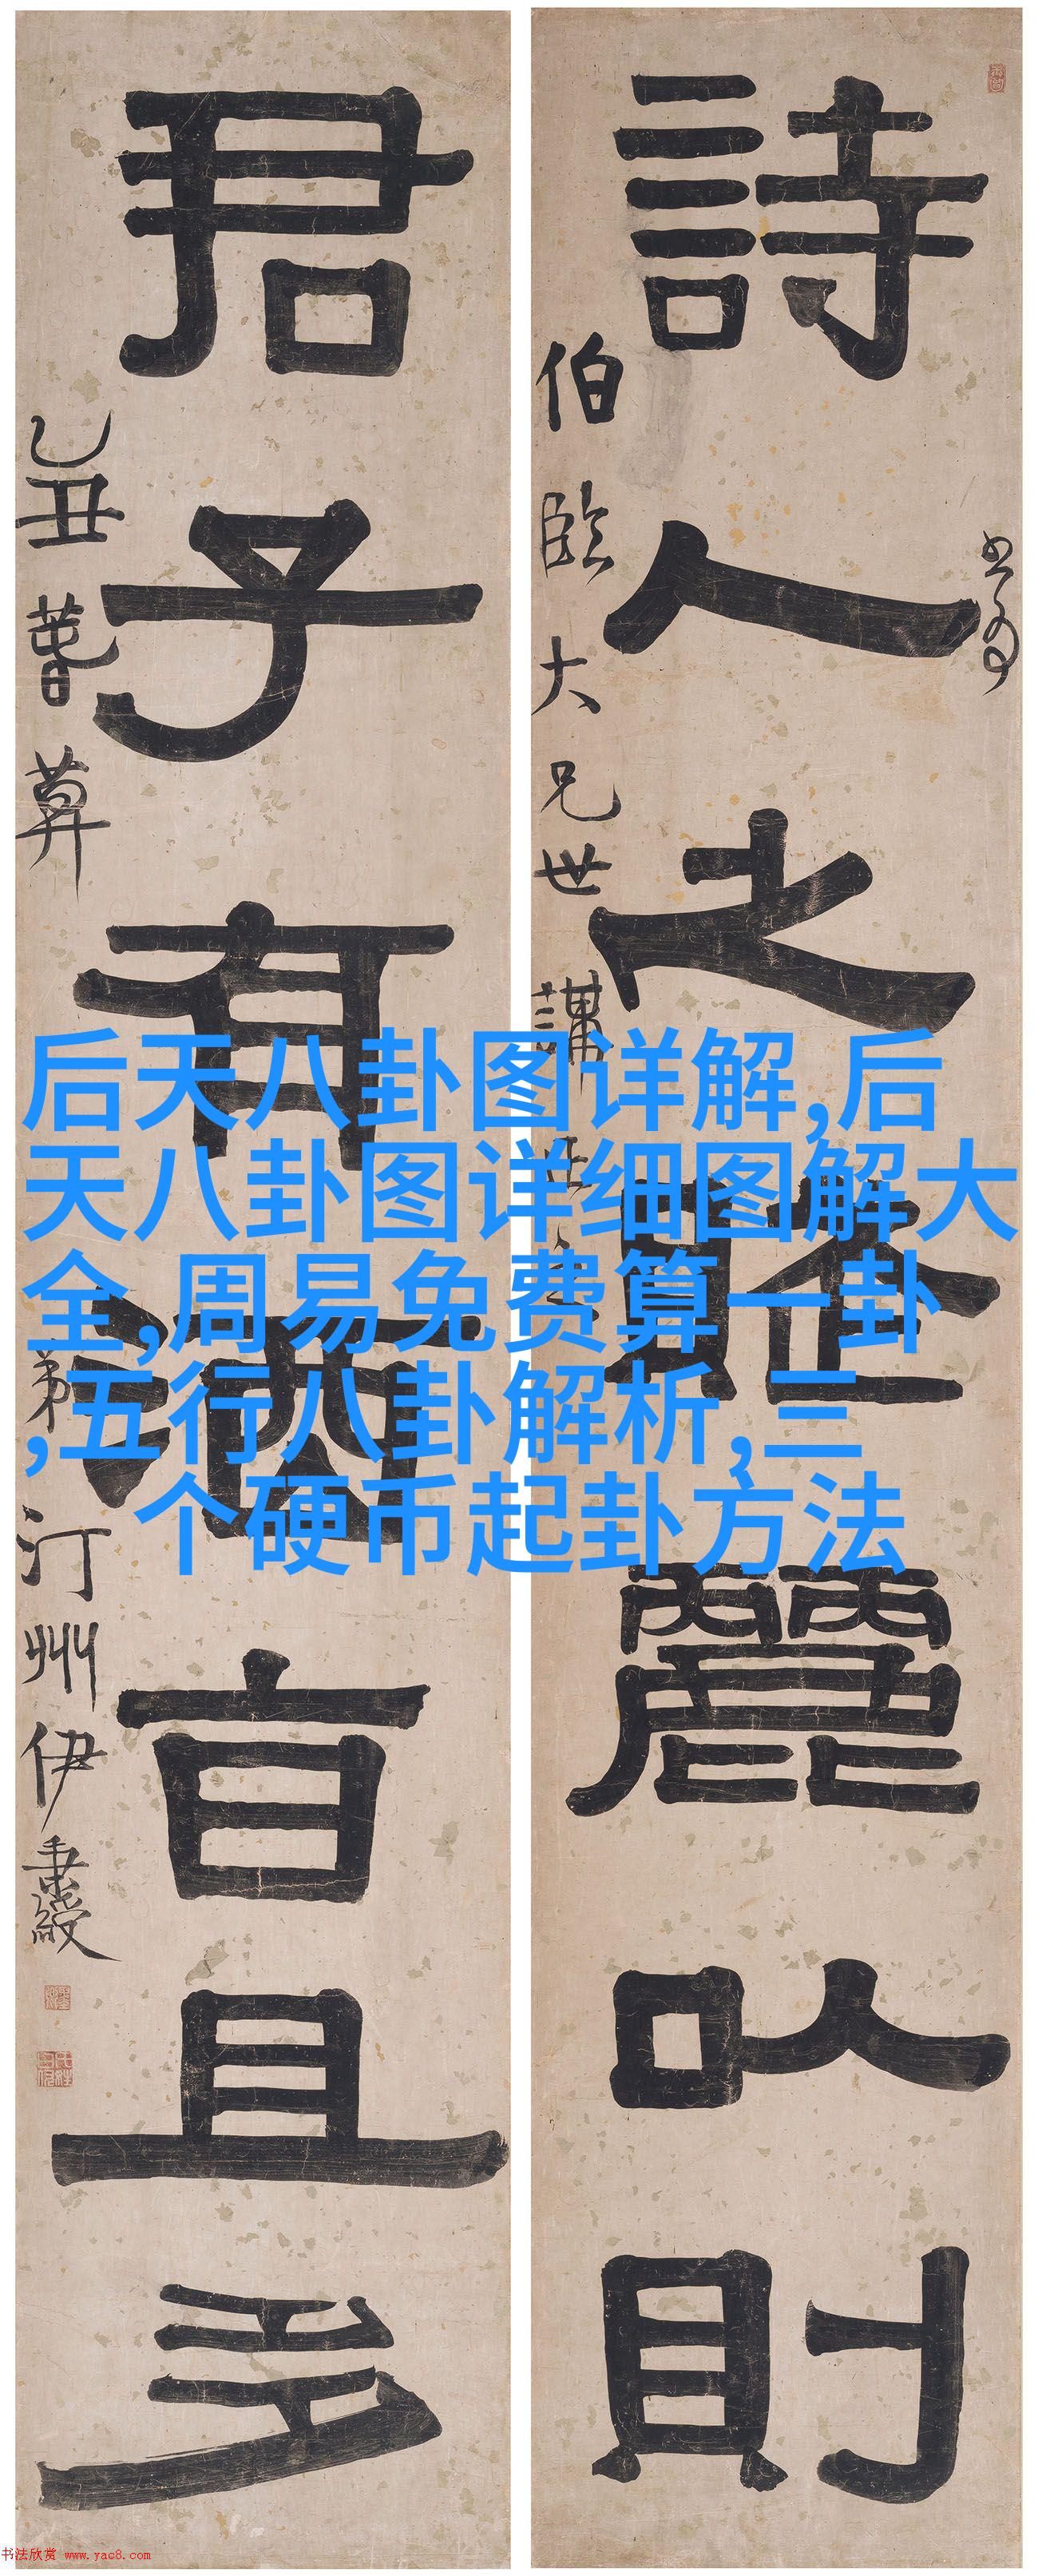 詩人之賦麗㕥則
伯臨大兄世講
君子有酒旨且多
乙丑
弟汀州伊秉綬
后天八卦图详解,后
天八卦图详细图解大
全,周易免费算一卦
,五行八卦解析,三
个硬币起卦方法
书法欣赏 www.yac8.com